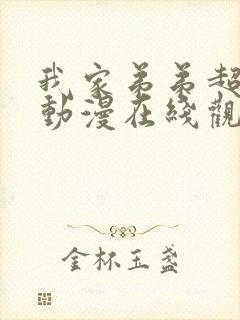 我家弟弟超
動漫在綫觀
金杯玉盞